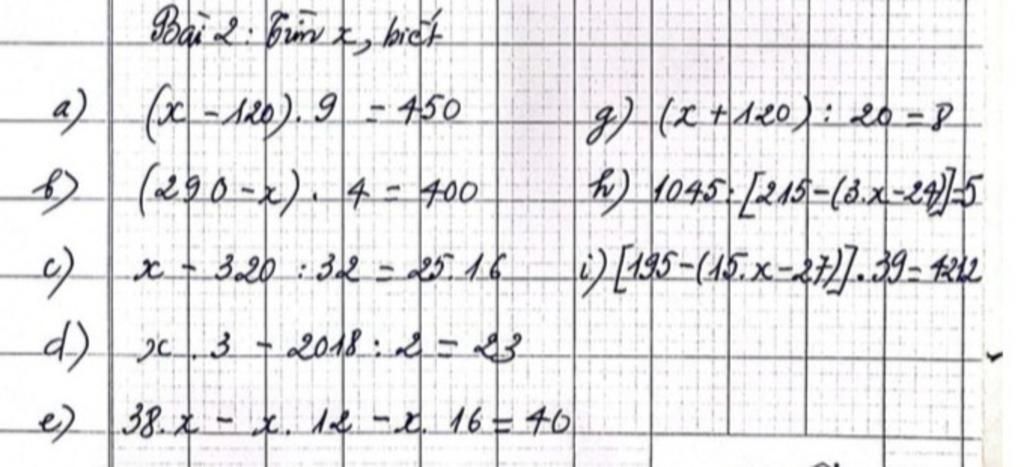 Bài 2: Tìm x, biết
a) (x - 120). 9 = 450
g) (x + 120) : 20 = 8
b) (290 - x) . 4 = 400
h) 1045 : [215-(3.x-24)]=5
c) x - 320 : 32 = 25.16
i) [195-(15.x-27)].39=4212
d) x . 3 - 2018 : 2 = 23
e) 38.x - x. 12 - x. 16 = 40